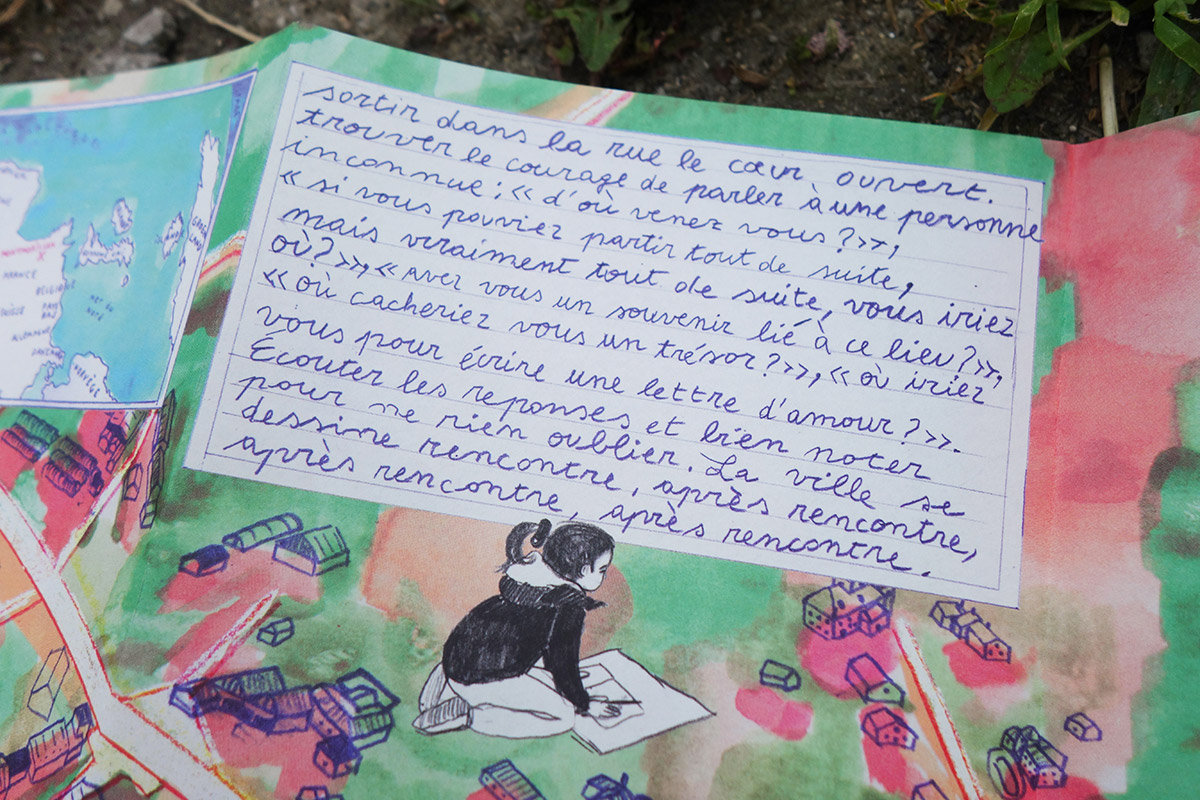 sortir dans la rue le cœur ouvert.
trouver le courage de parler à une personne
inconnue : « d'où venez vous ? »,
« si vous pouviez partir tout de suite,
mais vraiment tout de suite, vous iriez
où? », « Avez vous un souvenir lié à ce lieu ? »,
« où cacheriez vous un trésor ? », « où iriez
vous pour écrire une lettre d'amour ? ».
Écouter les reponses et bien noter
pour ne rien oublier. La ville se
dessine rencontre, après rencontre,
après rencontre, après rencontre.
FRANCE
BELGIQUE
PAYS
BAS
ALLEMAGNE
MER DU
NORD
NORVÈGE